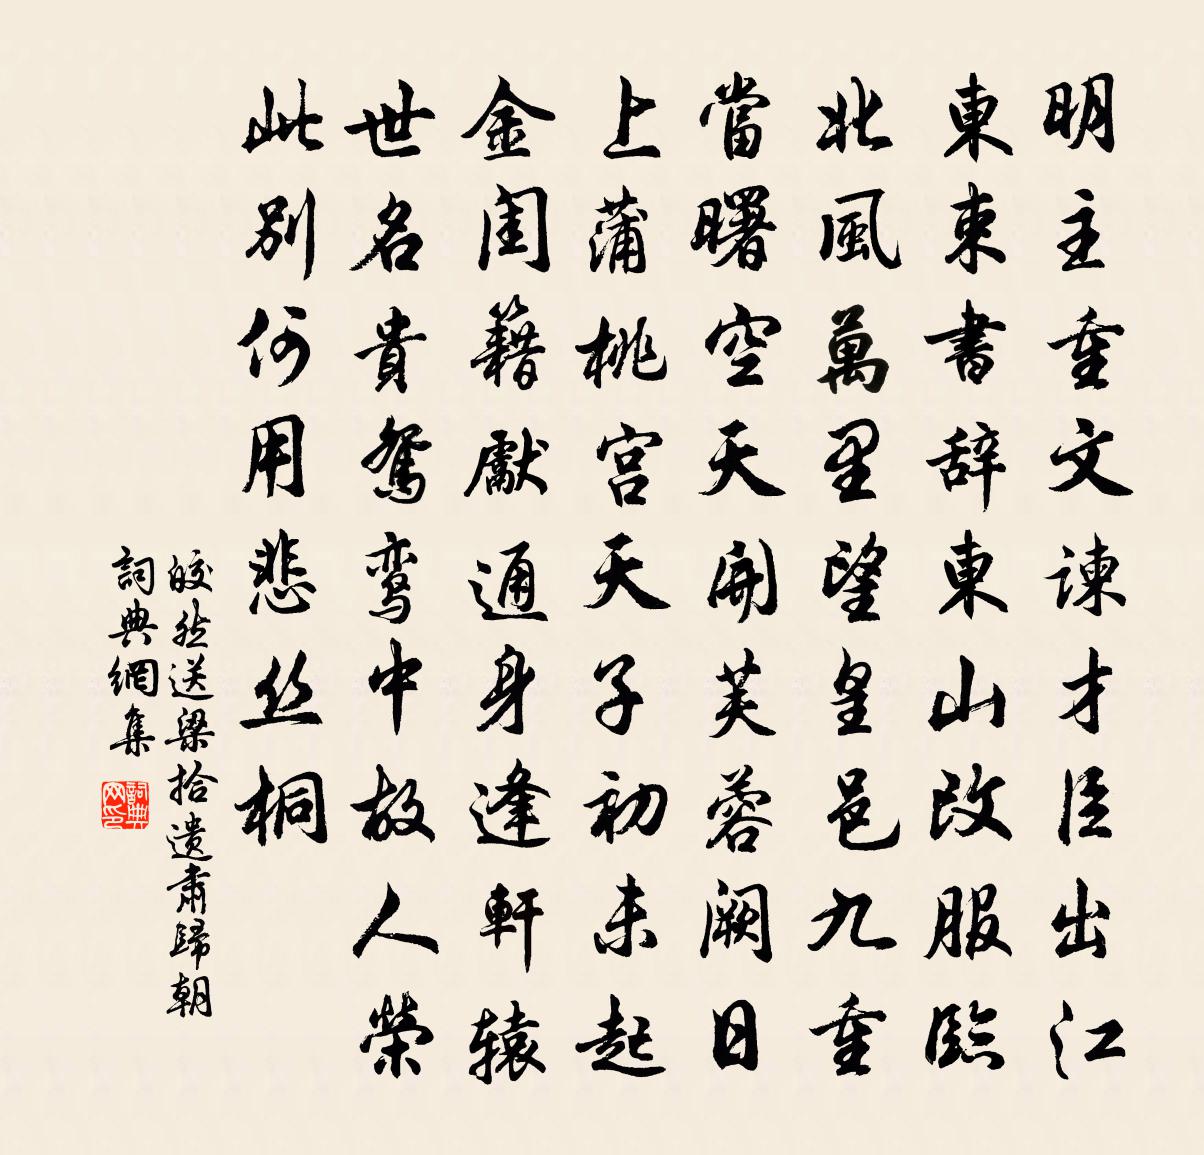 明主重文谏才臣出江
東束書辞東山改服臨
北風萬里望皇邑九重
當曙空天開芙蓉阙日
上蒲桃宫天子初未起
金闺籍獻通身逢軒辕
世名貴鴛鸾中故人榮
此别何用悲丝桐
皎然送梁拾遗肃歸朝
詞典網集
詞典网印